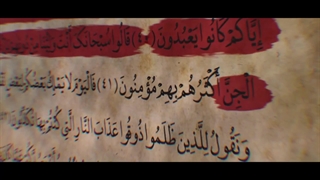 إِيَّاكُمْ كَانُوا يَعْبُدُونَ (٤٠) قَالُوا سُبْحَانَكَ أَنْتَ
الْجِنَّ أَكْثَرُهُمْ بِهِمْ مُؤْمِنُونَ (٤١) فَالْيَوْمَ لَا يَمْلِكُ بَعْضُكُمْ
وَنَقُولُ لِلَّذِينَ ظَلَمُوا ذُوقُوا عَذَابَ النَّارِ الَّتِي كُنْتُمْ بِهَا